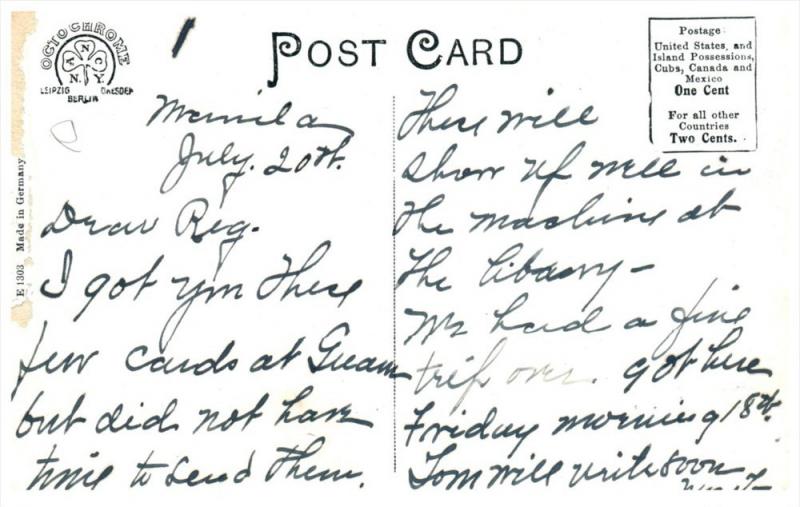 OCTOCHROME
N.
A C
N. Y.
LEIPZIG DRESDEN
BERLIN
POST CARD
Postage:
United States, and
Island Possessions,
Cuba, Canada and
Mexico
One Cent
For all other
Countries
Two Cents.
E 1303 Made in Germany
Manila
July. 20th.
Dear Reg.
I got you these
few cards at Guam
but did not have
time to send them.
These will
show up well in
the machine at
the libarry —
We had a fine
trip over. got here
Friday morning 18th.
Tom will write soon